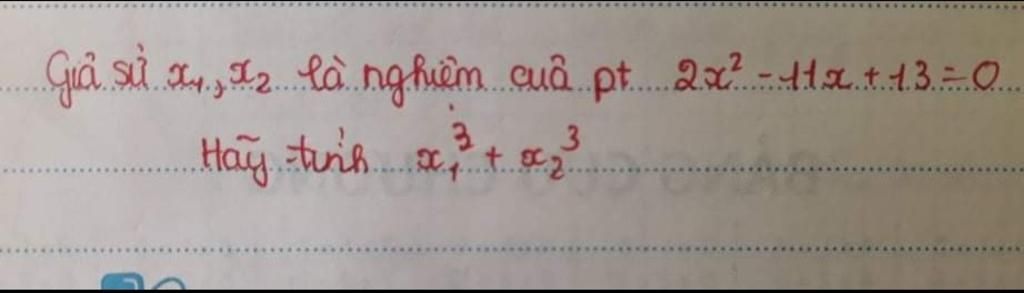 Giả sử x₁, x₂ là nghiệm của pt 2x² - 11x + 13 = 0
Hãy tính x₁³ + x₂³